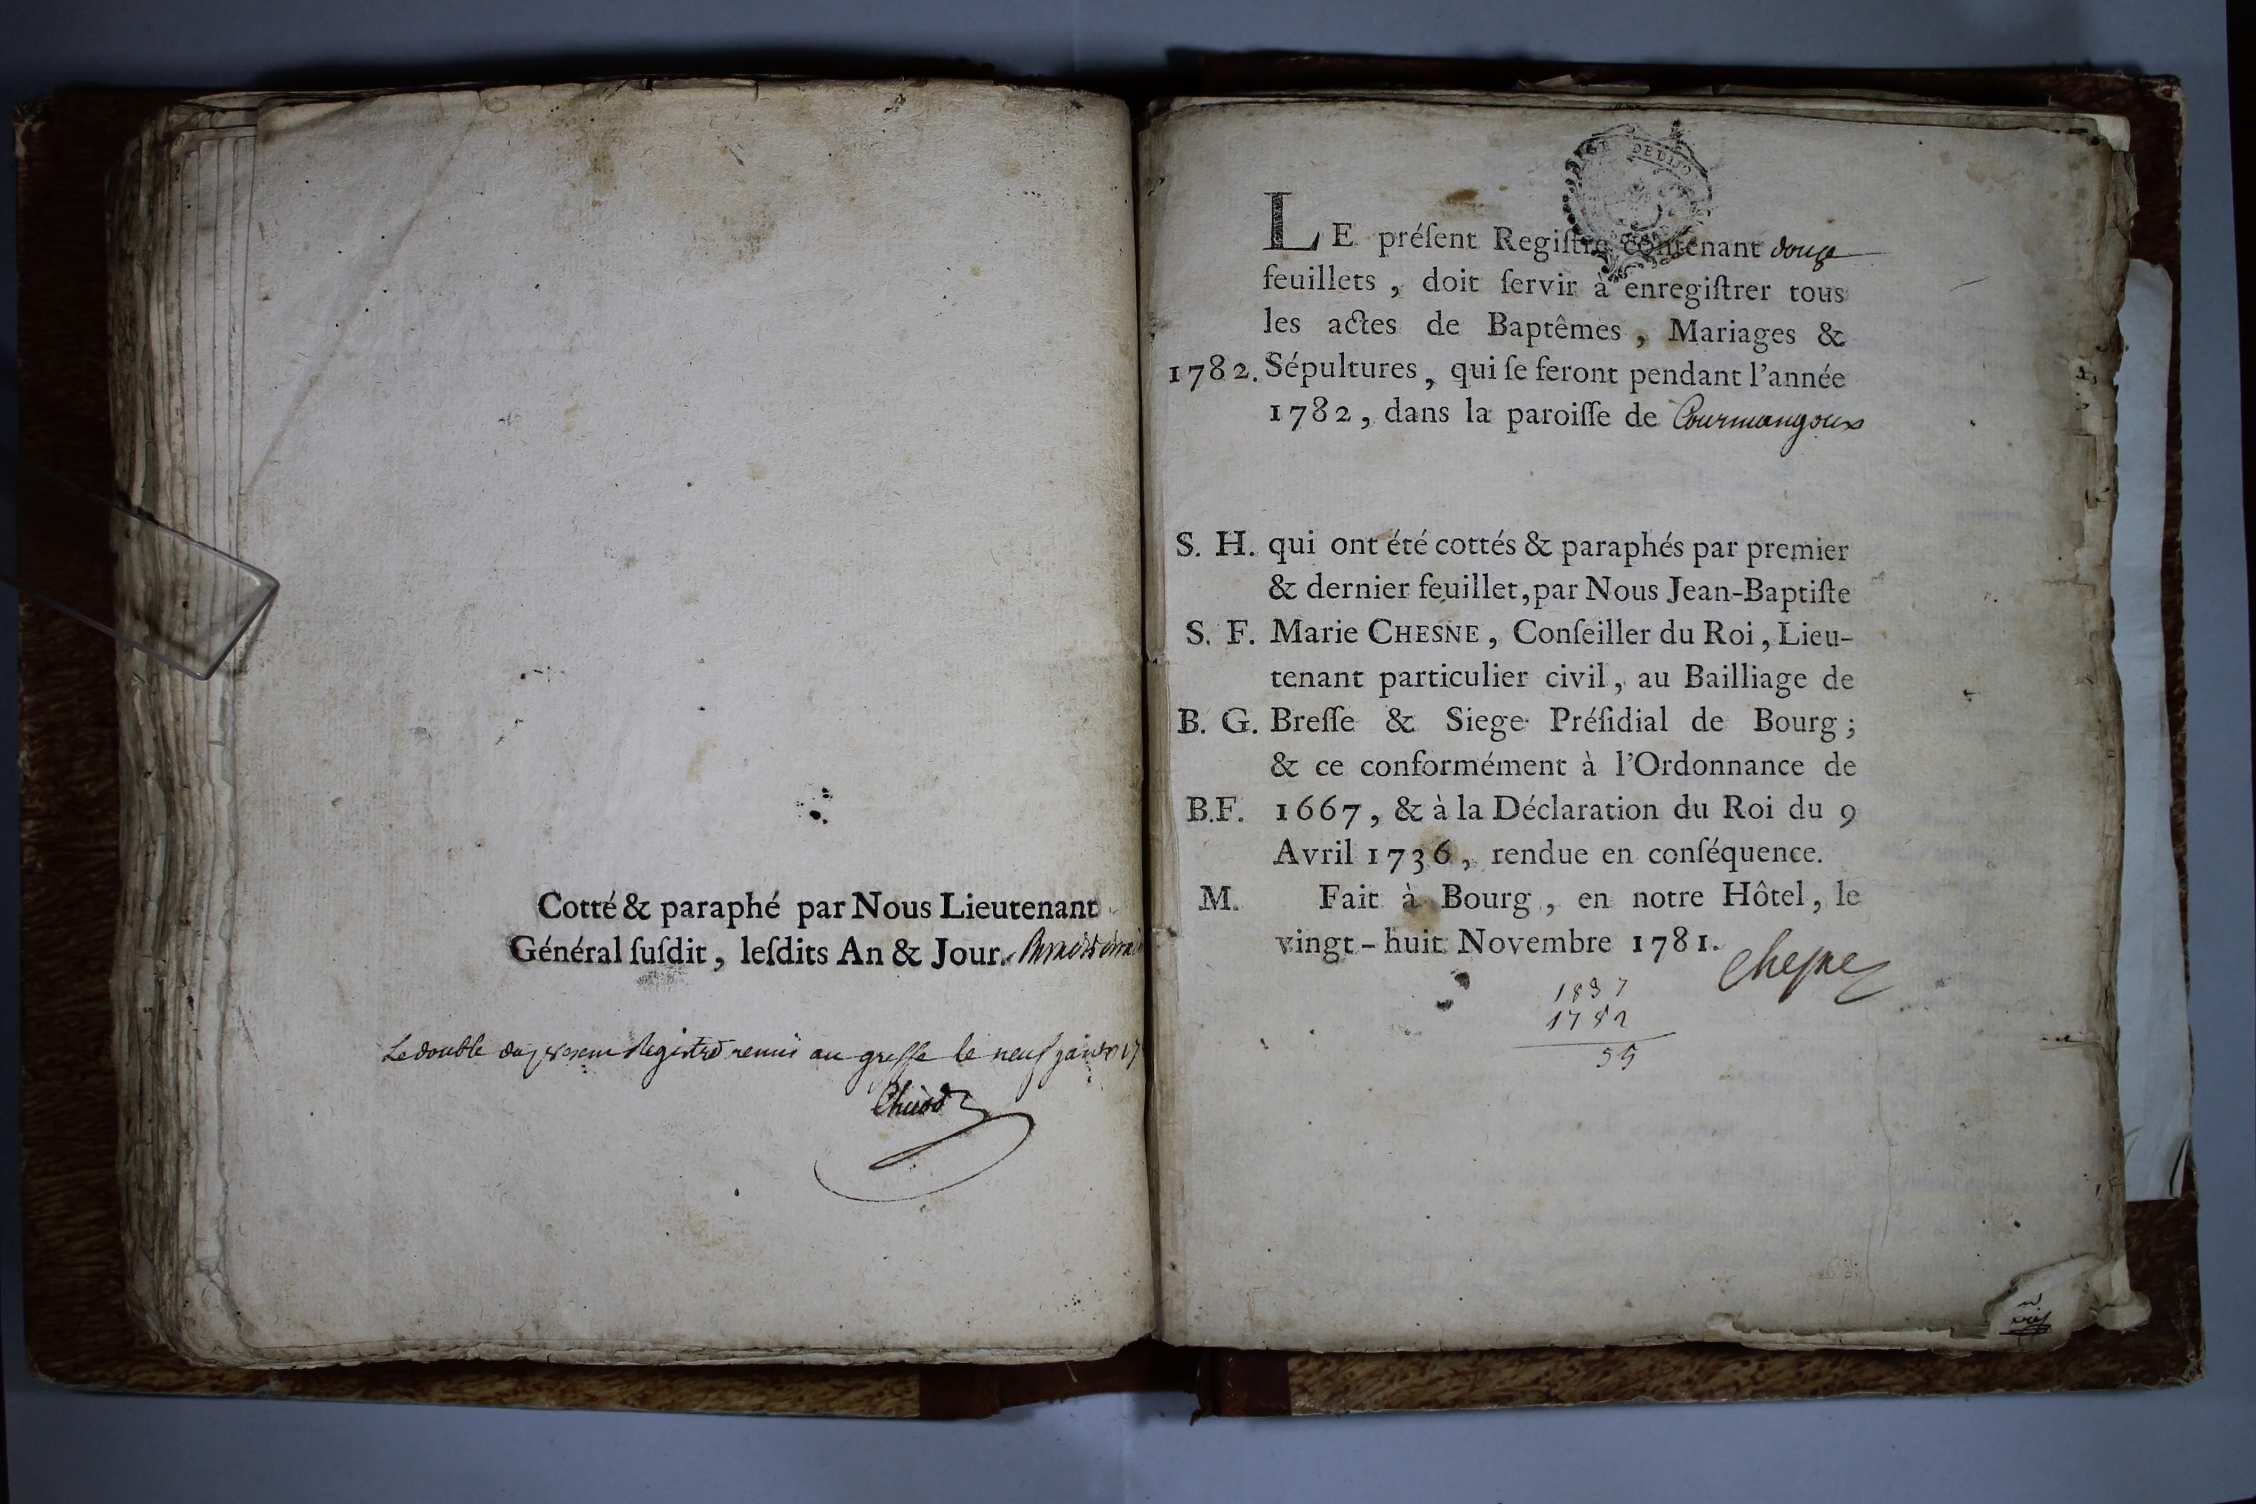 Cotté & paraphé par Nous Lieutenant
Général ſuſdit, leſdits An & Jour.
Le double du present Registre remis au greffe le neuf janvier 17
DE DIJO
LE préſent Regiſtre contenant douze
feuillets, doit ſervir à enregiſtrer tous
les actes de Baptêmes, Mariages &
1782. Sépultures, qui ſe feront pendant l'année
1782, dans la paroiſſe de Courmangoux
S. H. qui ont été cottés & paraphés par premier
& dernier feuillet, par Nous Jean-Baptiſte
S. F. Marie CHESNE, Conſeiller du Roi, Lieu-
tenant particulier civil, au Bailliage de
B. G. Breſſe & Siege Préſidial de Bourg;
& ce conformément à l'Ordonnance de
B.F. 1667, & à la Déclaration du Roi du 9
Avril 1736, rendue en conſéquence.
M. Fait à Bourg, en notre Hôtel, le
vingt-huit Novembre 1781.
Chesne
1837
1782
55